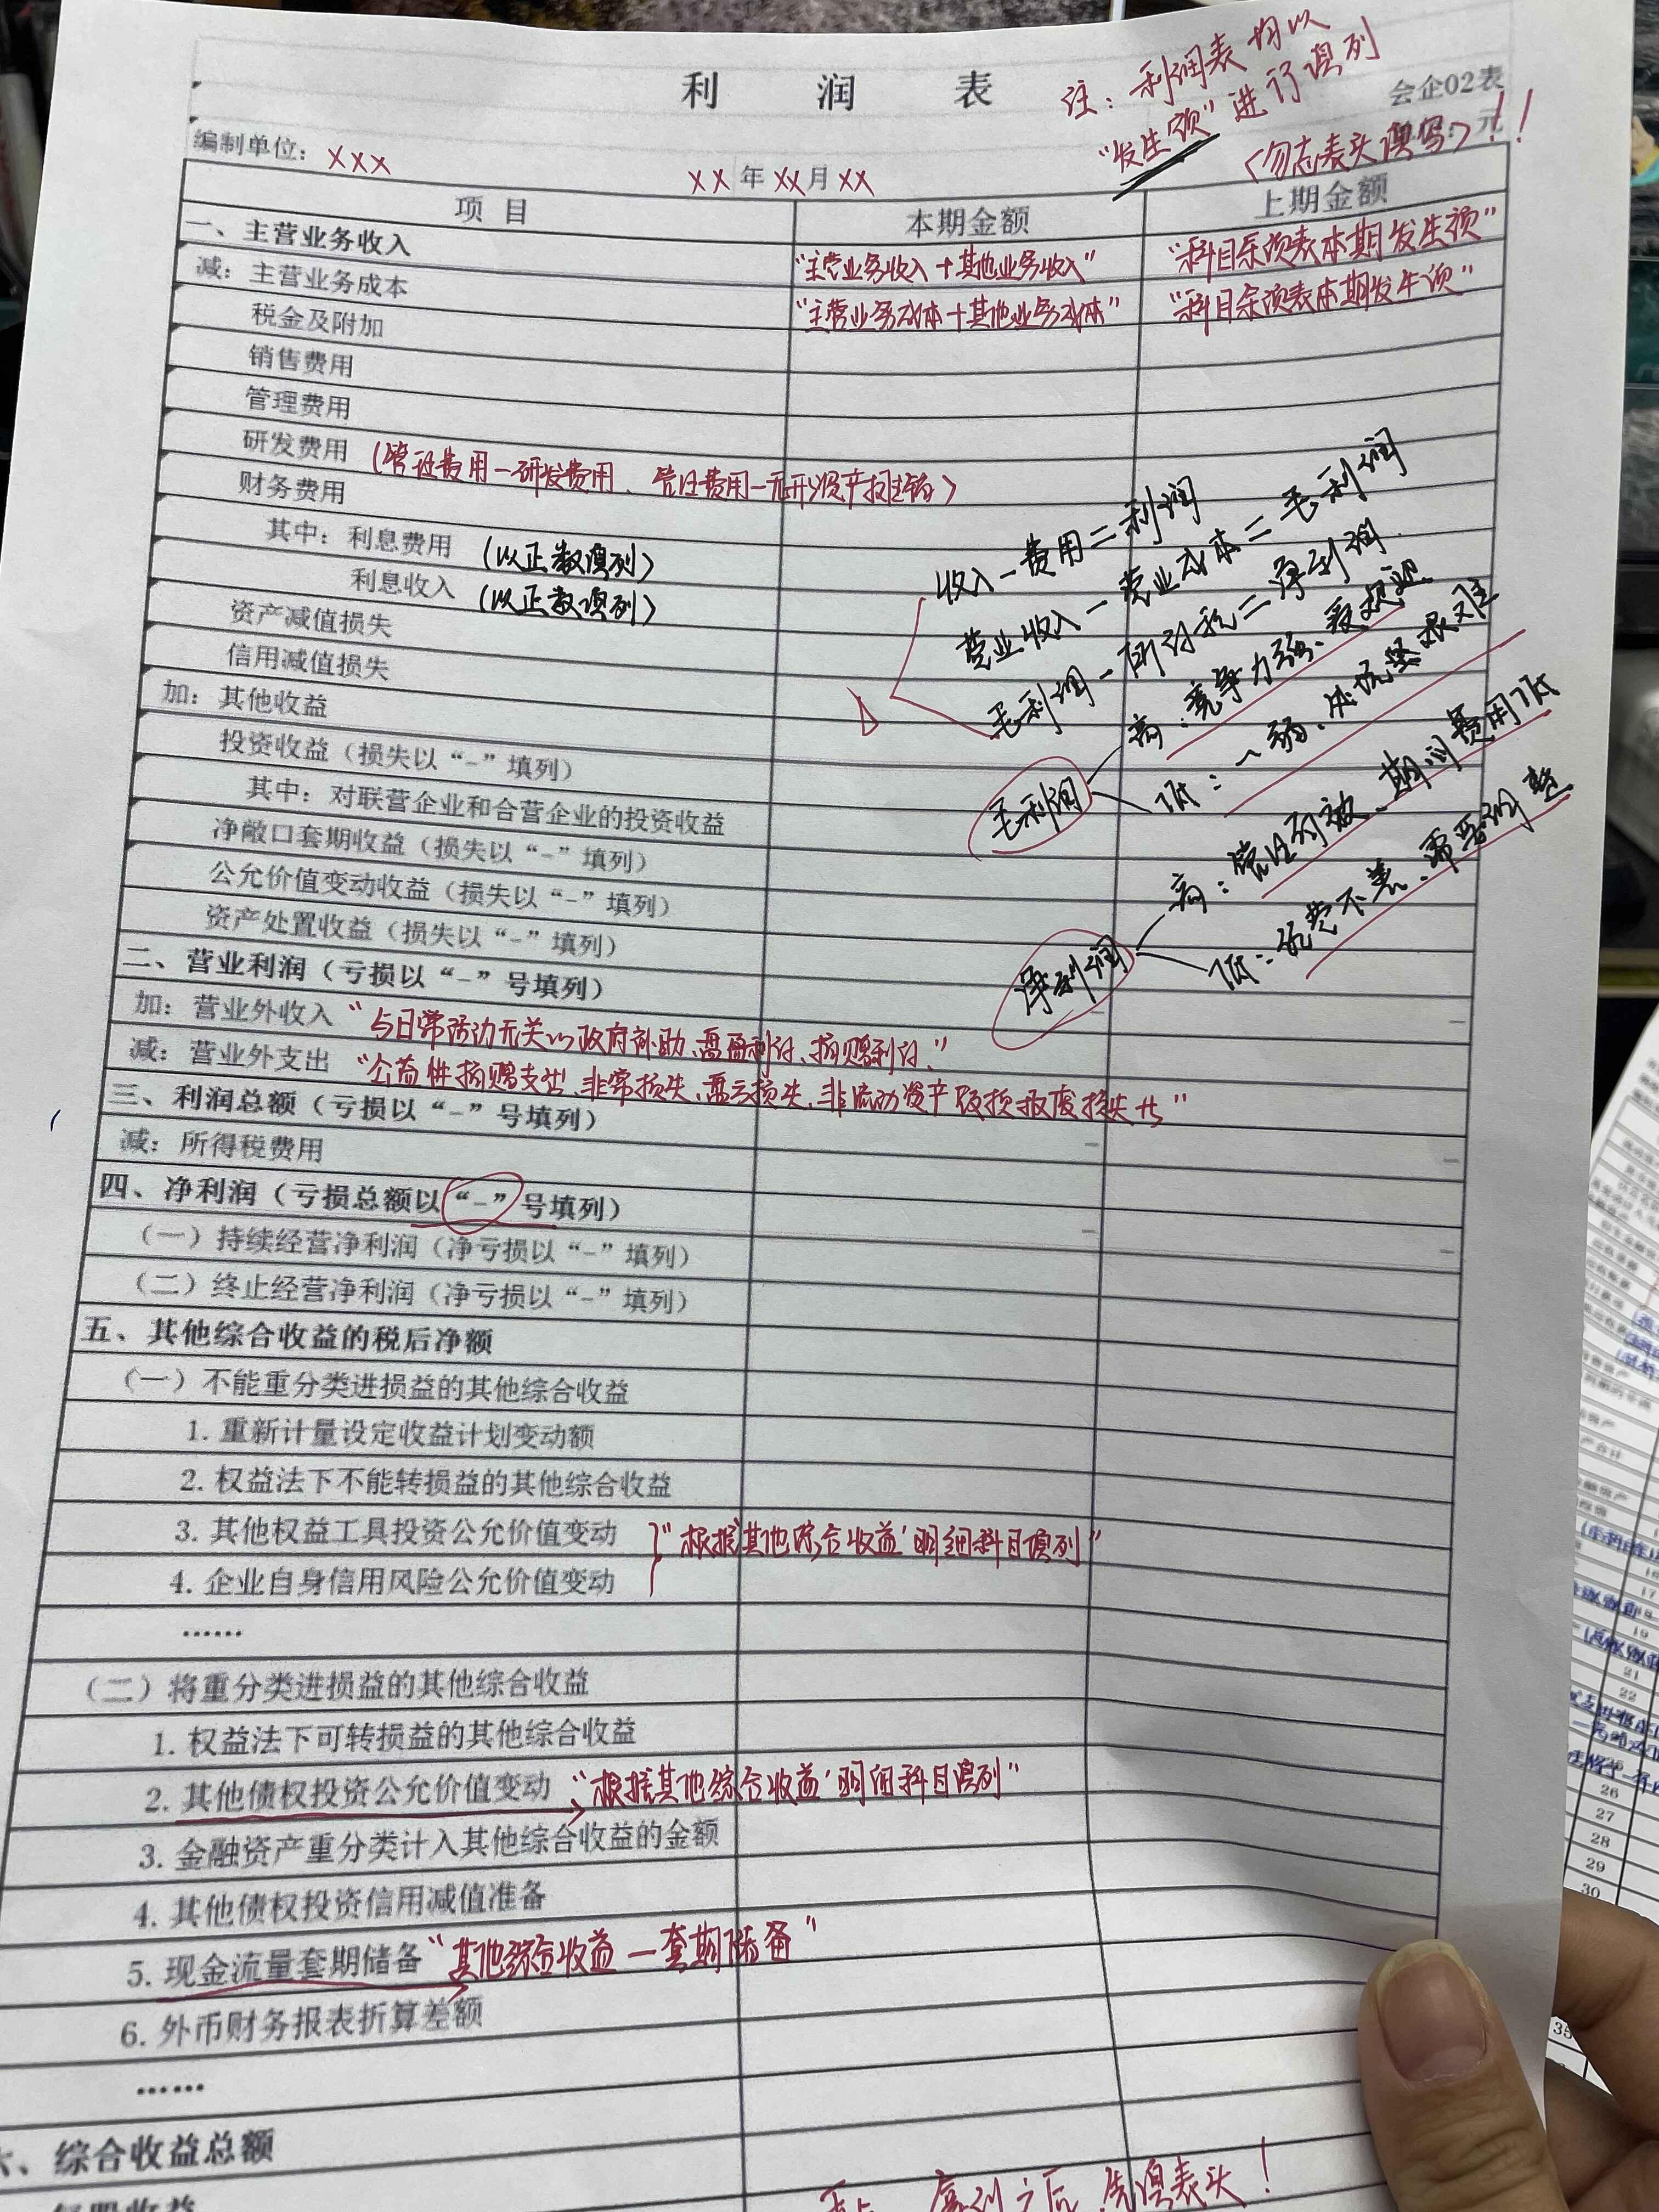 利 润 表
注：利润表均以
“发生额”进行填列
会企02表
元
〈勿忘表头填写〉！！
编制单位：×××
××年××月××
项 目 本期金额 上期金额
一、主营业务收入 “主营业务收入+其他业务收入” “科目余额表本期发生额”
减：主营业务成本 “主营业务成本+其他业务成本” “科目余额表本期发生额”
税金及附加
销售费用
管理费用
研发费用（管理费用—研发费用、管理费用—无形资产摊销）
财务费用
其中：利息费用（以正数填列）
利息收入（以正数填列）
资产减值损失
信用减值损失
收入－费用＝利润
营业收入－营业成本＝毛利润
毛利润－所得税＝净利润
加：其他收益
投资收益（损失以“-”填列）
其中：对联营企业和合营企业的投资收益
净敞口套期收益（损失以“-”填列）
公允价值变动收益（损失以“-”填列）
资产处置收益（损失以“-”填列）
毛利润
高：竞争力强、受欢迎
低：～弱、
净利润
高：管理有效、期间费用低
低：不善、需要调整
二、营业利润（亏损以“-”号填列）
加：营业外收入 “与日常活动无关的政府补助、盘盈利得、捐赠利得”
减：营业外支出 “公益性捐赠支出、非常损失、盘亏损失、非流动资产毁损报废损失等”
三、利润总额（亏损以“-”号填列）
减：所得税费用
四、净利润（亏损总额以“-”号填列）
（一）持续经营净利润（净亏损以“-”填列）
（二）终止经营净利润（净亏损以“-”填列）
五、其他综合收益的税后净额
（一）不能重分类进损益的其他综合收益
1. 重新计量设定收益计划变动额
2. 权益法下不能转损益的其他综合收益
3. 其他权益工具投资公允价值变动 “根据‘其他综合收益’明细科目填列”
4. 企业自身信用风险公允价值变动
……
（二）将重分类进损益的其他综合收益
1. 权益法下可转损益的其他综合收益
2. 其他债权投资公允价值变动 “根据其他综合收益’明细科目填列”
3. 金融资产重分类计入其他综合收益的金额
4. 其他债权投资信用减值准备
5. 现金流量套期储备 “其他综合收益—套期储备”
6. 外币财务报表折算差额
……
六、综合收益总额
先填表头！
17
19
21
22
26
27
28
29
30
35